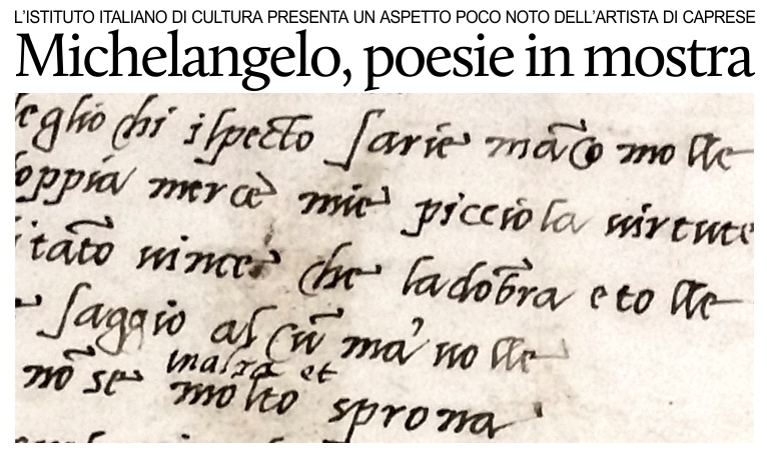 L'ISTITUTO ITALIANO DI CULTURA PRESENTA UN ASPETTO POCO NOTO DELL'ARTISTA DI CAPRESE
Michelangelo, poesie in mostra
eglio chi ispecto sarie mãco molle
oppia mercè mie picciola uirtute
itãto uince che ladõbra e to lle
saggio alcũ ma' uolle
inalza et
nõ se molto sprona